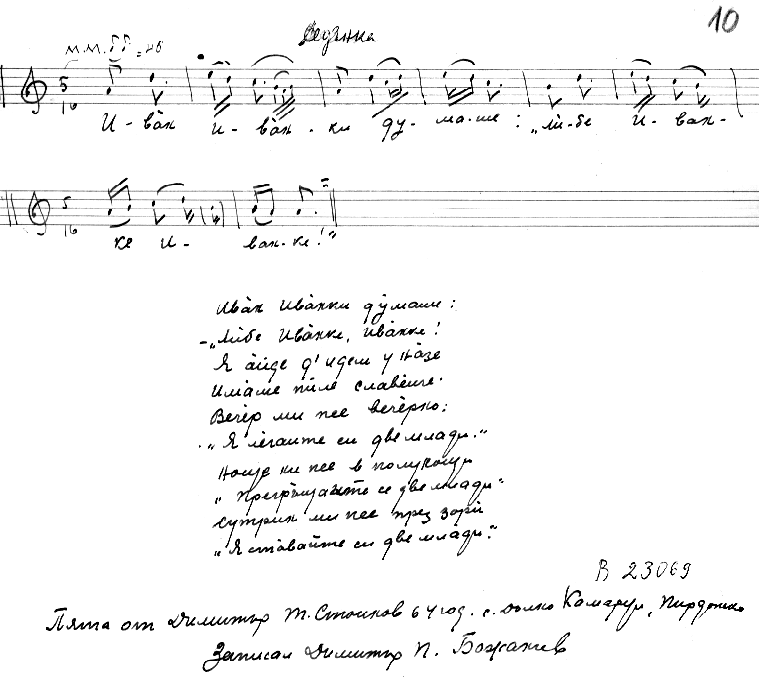 Седянка
10
М.М.
5
16
И - вàн и - вàн - ки ду - ма - ше : „ли - бе И - ван -
5
16
ке и - ван - ке!"
Ивàн Ивàнки ду̀маше:
- „Лѝбе Ивàнке, Ивàнке!
Я àйде д' идем у нàзе
Имàме пѝле славèйче.
Вечèр ми пее вечèрно:
„Я лèгайте си две млади."
Ноще ми пее в полунощи
„Прегръщайте се две млади"
Сутрин ми пее през зори
„Я стàвайте си две млади."
В 23069
Пята от Димитър Т. Стоичков 64 год. с. Долно Камарци, Пирдопско
Записал Димитър П. Божанев